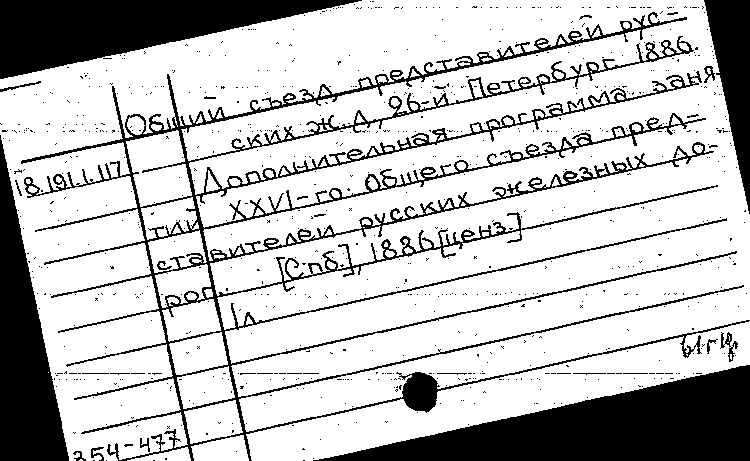 Общий съезд представителей рус-
ских ж. д., 26-й. Петербург. 1886.
18.191.1.117
Дополнительная программа заня-
тий XXVI-го Общего съезда пред-
ставителей русских железных до-
рог. [Спб.], 1886 [ценз.]
1 л.
354-477